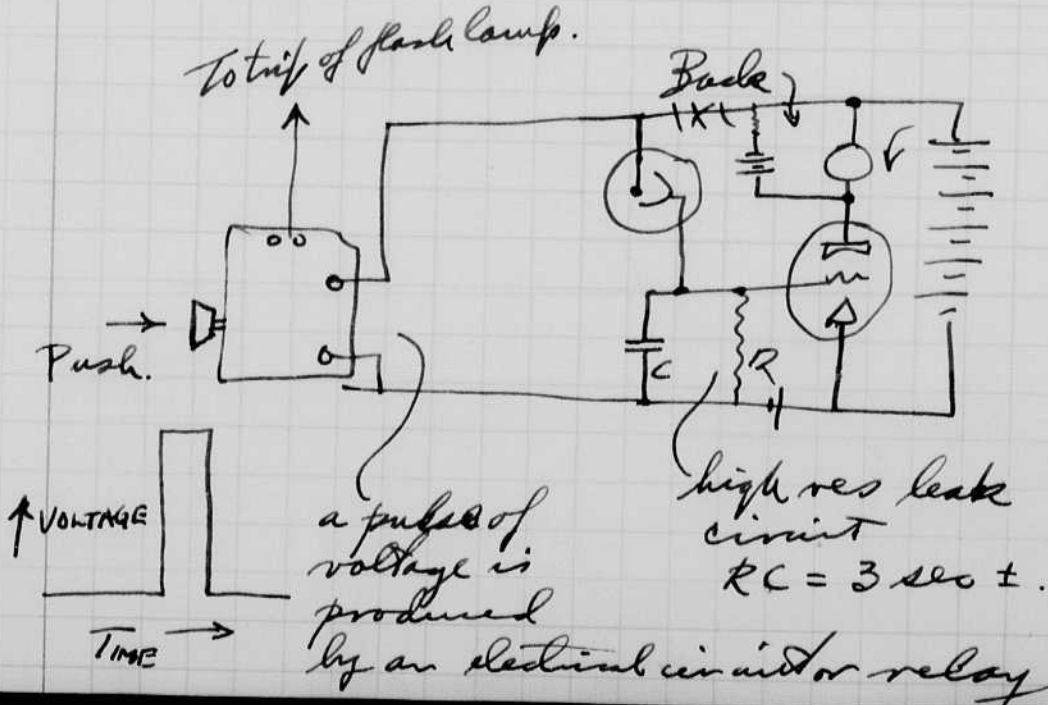 To trip of flash lamp.
Buck
Push.
C
R
↑ VOLTAGE
TIME →
a pulse of
voltage is
produced
by an electrical circuit or relay
high res leak
circuit
RC = 3 sec ±.